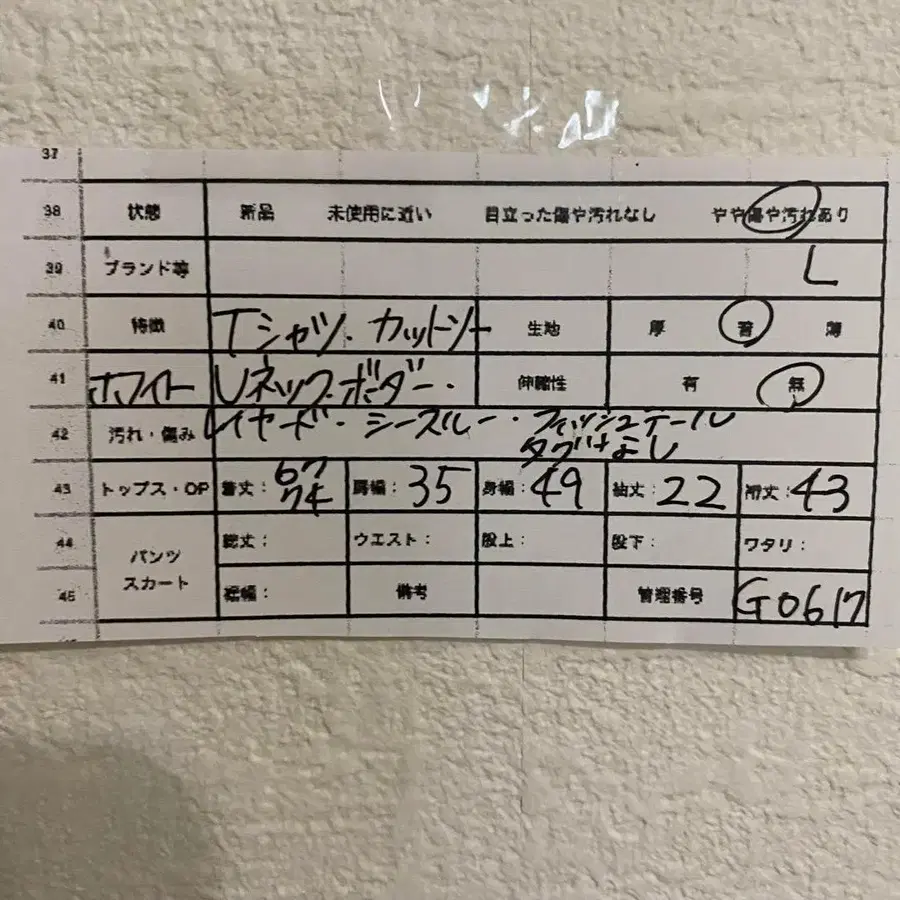 37
38 状態 新品 未使用に近い 目立った傷や汚れなし やや傷や汚れあり
39 ブランド等 L
40 特徴 Tシャツ・カットソー 生地 厚 普 薄
41 ホワイト Uネック・ボーダー・ 伸縮性 有 無
42 汚れ・傷み レイヤード・シースルー・フィッシュテール
タグなし
43 トップス・OP 着丈: 67 74 肩幅: 35 身幅: 49 袖丈: 22 裄丈: 43
44 パンツ 総丈: ウエスト: 股上: 股下: ワタリ:
45 スカート 裾幅: 備考 管理番号 G0617